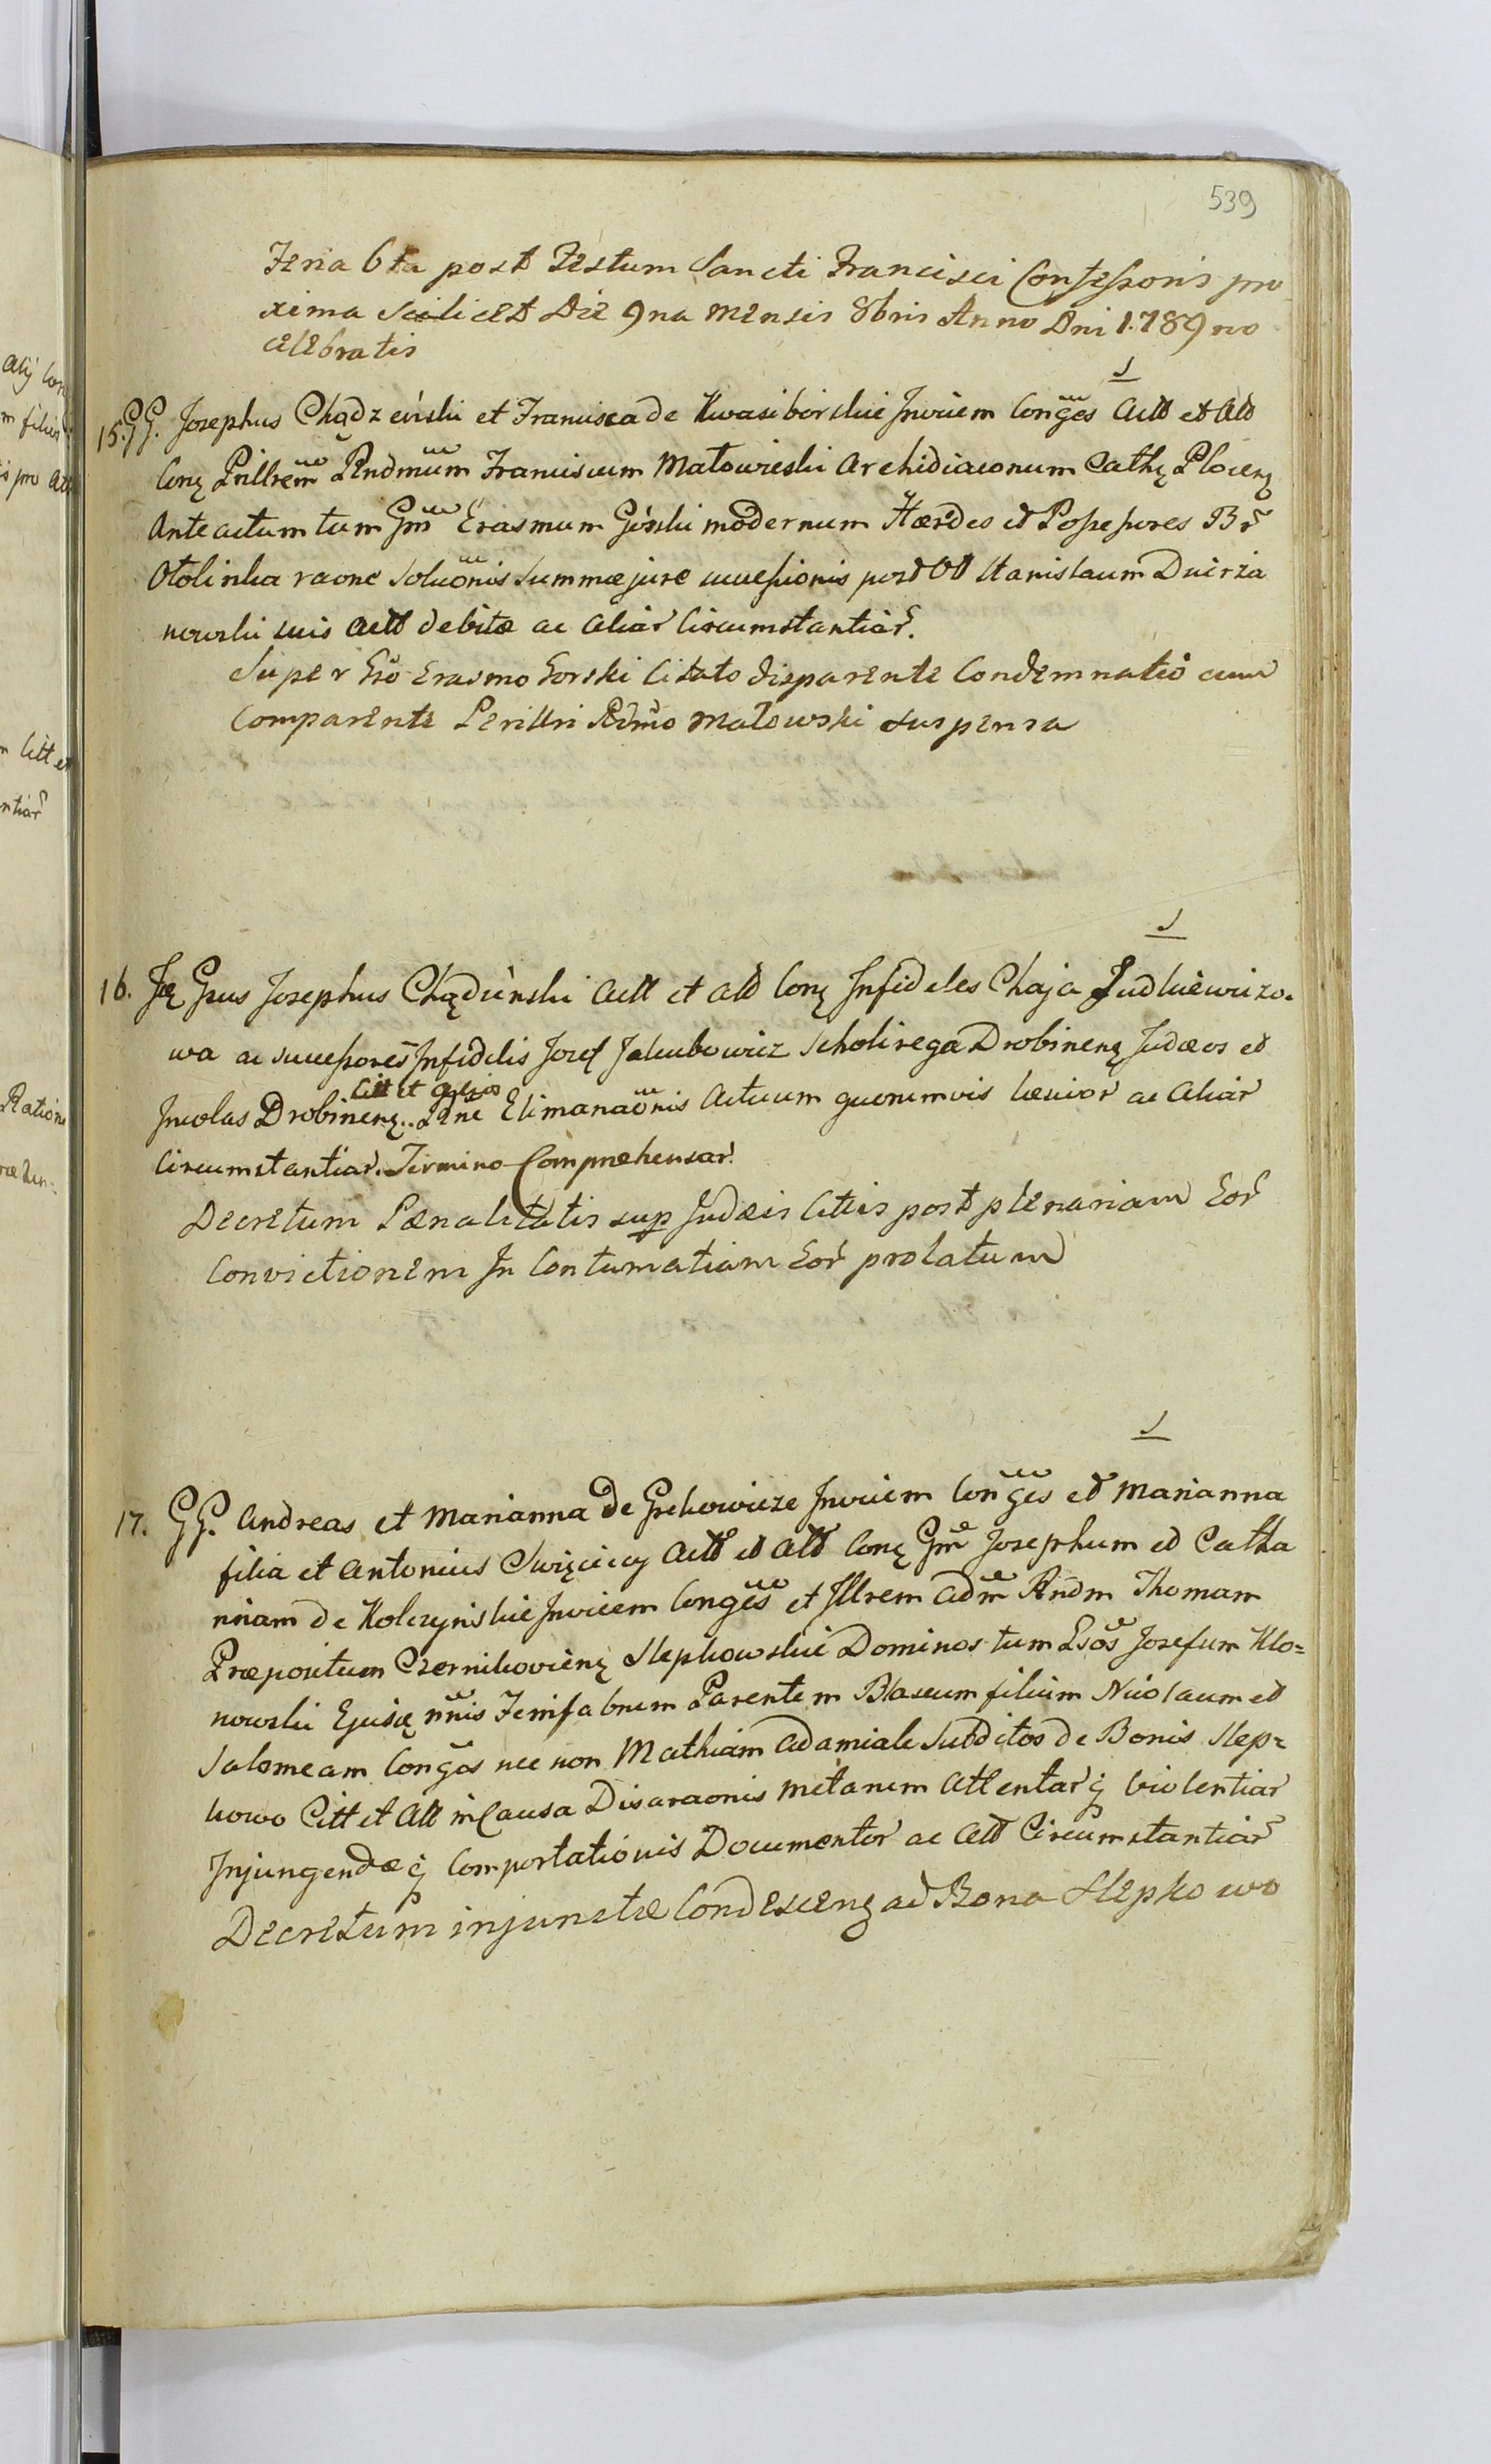 539
Feria 6ta post Festum Sancti Francisci Confessoris pro
xima Scilicet Die 9na Mensis 8bris Anno Dni 1.789no
celebratis
15. GG. Josephus Chądzeński et Francisca de Kwasiborskie Invicem Congēs Actt et Att
Conţ Prillrem Rndmum Franciscum Matowieski Archidiaconum Cathţ Plocenţ
Anteactum tum Gm Erasmum Górski modernum Hærdes et Possessores Br
Otolinka raone Soluōnis Summæ jure successionis post Stanislaum Dzierza
nowski suis Actt debitæ ac Aliar Circumstantiar.
Super Gso Erasmo Gorski Citato disparente Condemnatio cum
Comparente Perillri Rdmo Matowski suspensa
16. Gsus Josephus Chądzinski Actt et Att Conţ Infideles Chaja Judkiewiczo-
wa ac successores Infidelis Josef Jakubowicz Scholirega Drobinenţ Judæos et
Incolas Drobinenţ Citt et Elimanaōnis Actuum quorumvis læsivor ac Aliar
Circumstantiar. Termino Comprehensar.
Decretum Pænalitatis sup Judæis Cittis post plenariam Eor
Convictionem In Contumatiam Eor prolatum
17. GG. Andreas et Marianna de Grekowicze Invicem Congēs et Marianna
filia et Antonius Swięcicy Actt et Att Conţ Gm Josephum et Catha
rinam de Kolczynskie Invicem Congēs et Illrem Adm Rndm Thomam
Præpositum Czernikovienţ Slepkowskie Dominos tum Lsos Josefum Klo=
nowski Ejusţ nnis Fenifabrum Parentem Blaseum filium Nicolaum et
Salomeam Congēs nec non Mathiam Adamiak Subditos de Bonis Slep=
kowo Citt et Att in Causa Disaraonis metarum Attentarţ Violentiar
Injungendæţ Comportationis Documentor ac Att Circumstantiar
Decretum injunctæ Condescenţ ad Bona Slepkowo